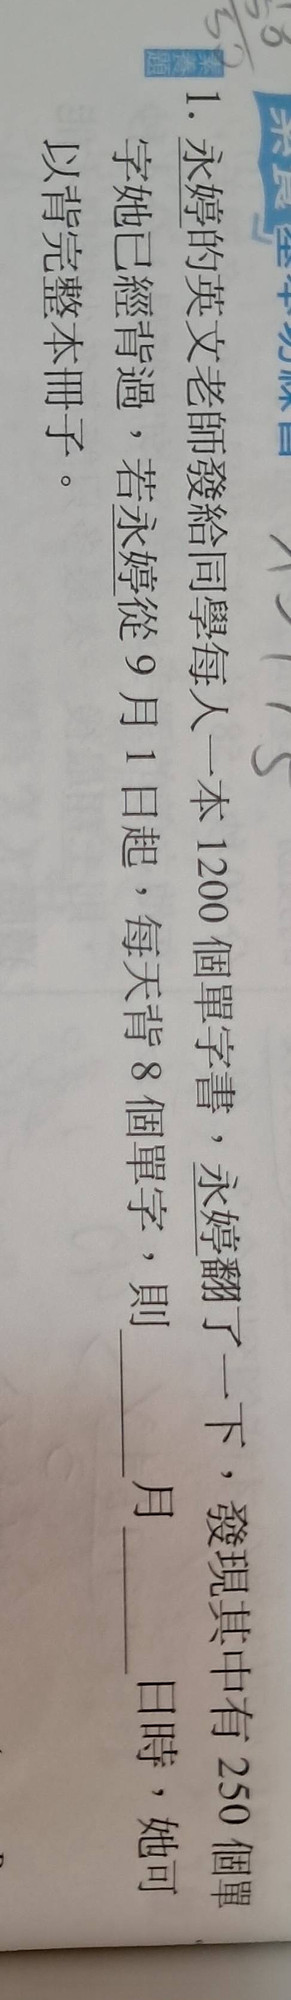 素養題
1. 永婷的英文老師發給同學每人一本 1200 個單字書，永婷翻了一下，發現其中有 250 個單
字她已經背過，若永婷從 9 月 1 日起，每天背 8 個單字，則______月______日時，她可
以背完整本冊子。